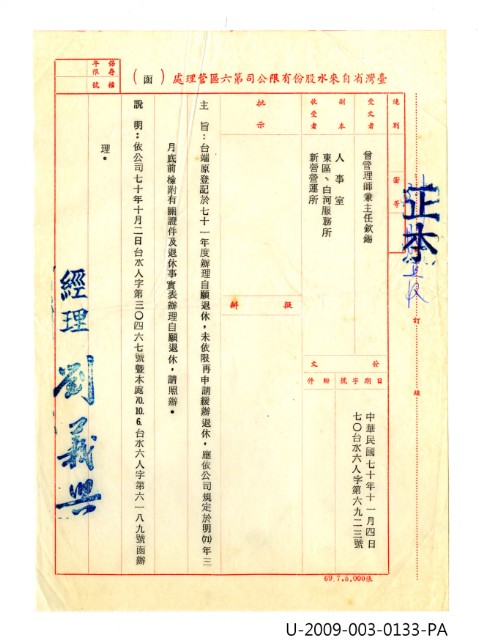 臺灣省自來水股份有限公司第六區管理處（函）
保存檔
年限號
速別
密等
正本
裝
訂
線
受文者
曾管理師兼主任欽錫
副本
收受者
人事室
東區、白河服務所
新營營運所
批示
擬辦
發文
日期字號附件
中華民國七十年十一月四日
七〇台水六人字第六九二三號
主旨：台端原登記於七十一年度辦理自願退休，未依限再申請緩辦退休，應依公司規定於明(71)年三
月底前檢附有關證件及退休事實表辦理自願退休，請照辦。
說明：依公司七十年十月二日台水人字第三〇四六七號暨本處70.10.6.台水六人字第六一八九號函辦
理。
經理 劉義興
69.7.5,000張
U-2009-003-0133-PA